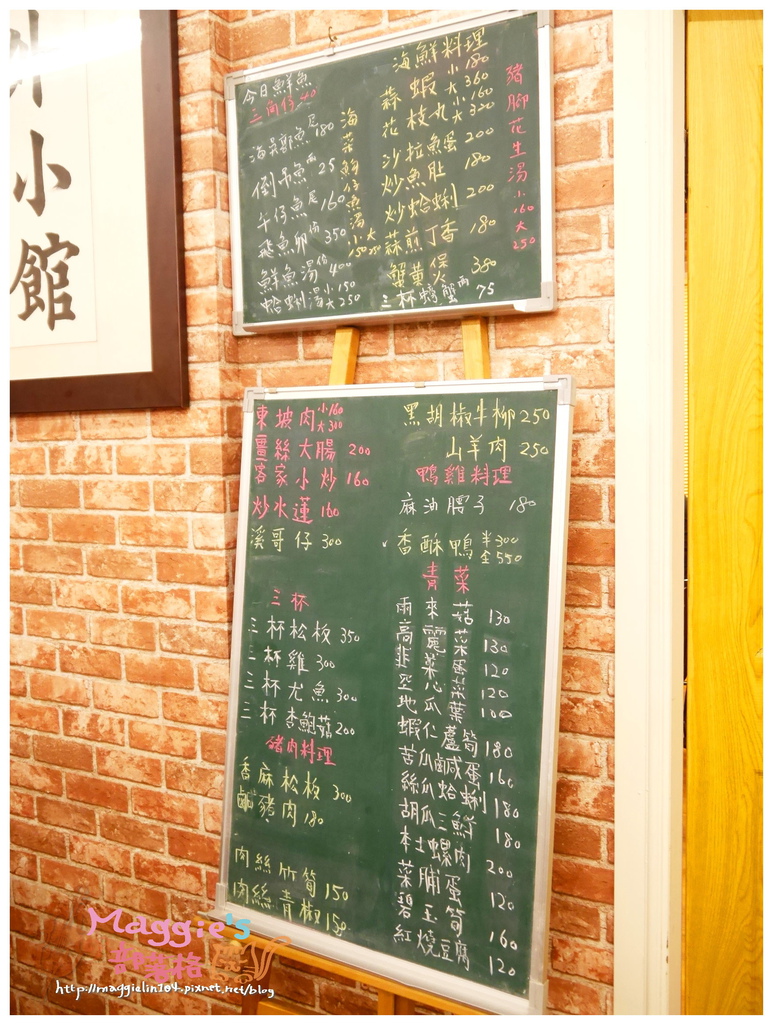 小館
今日鮮魚
三角仔 40
海吳郭魚尾180
倒吊魚兩25
午仔魚尾160
飛魚卵份350
鮮魚湯份400
蛤蜊湯小150大250
海菜魩仔魚湯小150大250
海鮮料理
蒜蝦小180大360
花枝丸小160大320
沙拉魚蛋200
炒魚肚180
炒蛤蜊200
蒜煎丁香180
蟹黃煲380
三杯螃蟹兩75
豬腳花生湯小160大250
東坡肉小160大300
薑絲大腸200
客家小炒160
炒水蓮160
溪哥仔300
三杯
三杯松板350
三杯雞300
三杯尤魚300
三杯杏鮑菇200
豬肉料理
香麻松板300
鹹豬肉180
肉絲竹筍150
肉絲青椒150
黑胡椒牛柳250
山羊肉250
鴨雞料理
麻油腰子180
香酥鴨半300全550
青菜
雨來菇130
高麗菜130
韭菜蛋120
空心菜120
地瓜葉100
蝦仁蘆筍180
苦瓜鹹蛋160
絲瓜蛤蜊180
胡瓜三鮮180
本土螺肉200
菜脯蛋120
碧玉筍160
紅燒豆腐120
Maggie's
部落格
http://maggielin104.pixnet.net/blog